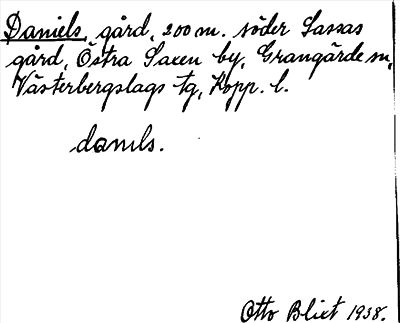 Daniels, gård, 200 m. söder Lassas
gård, Östra Saxen by, Grangärde sn,
Västerbergslags tg, Kopp. l.
danils.
Otto Blixt 1938.